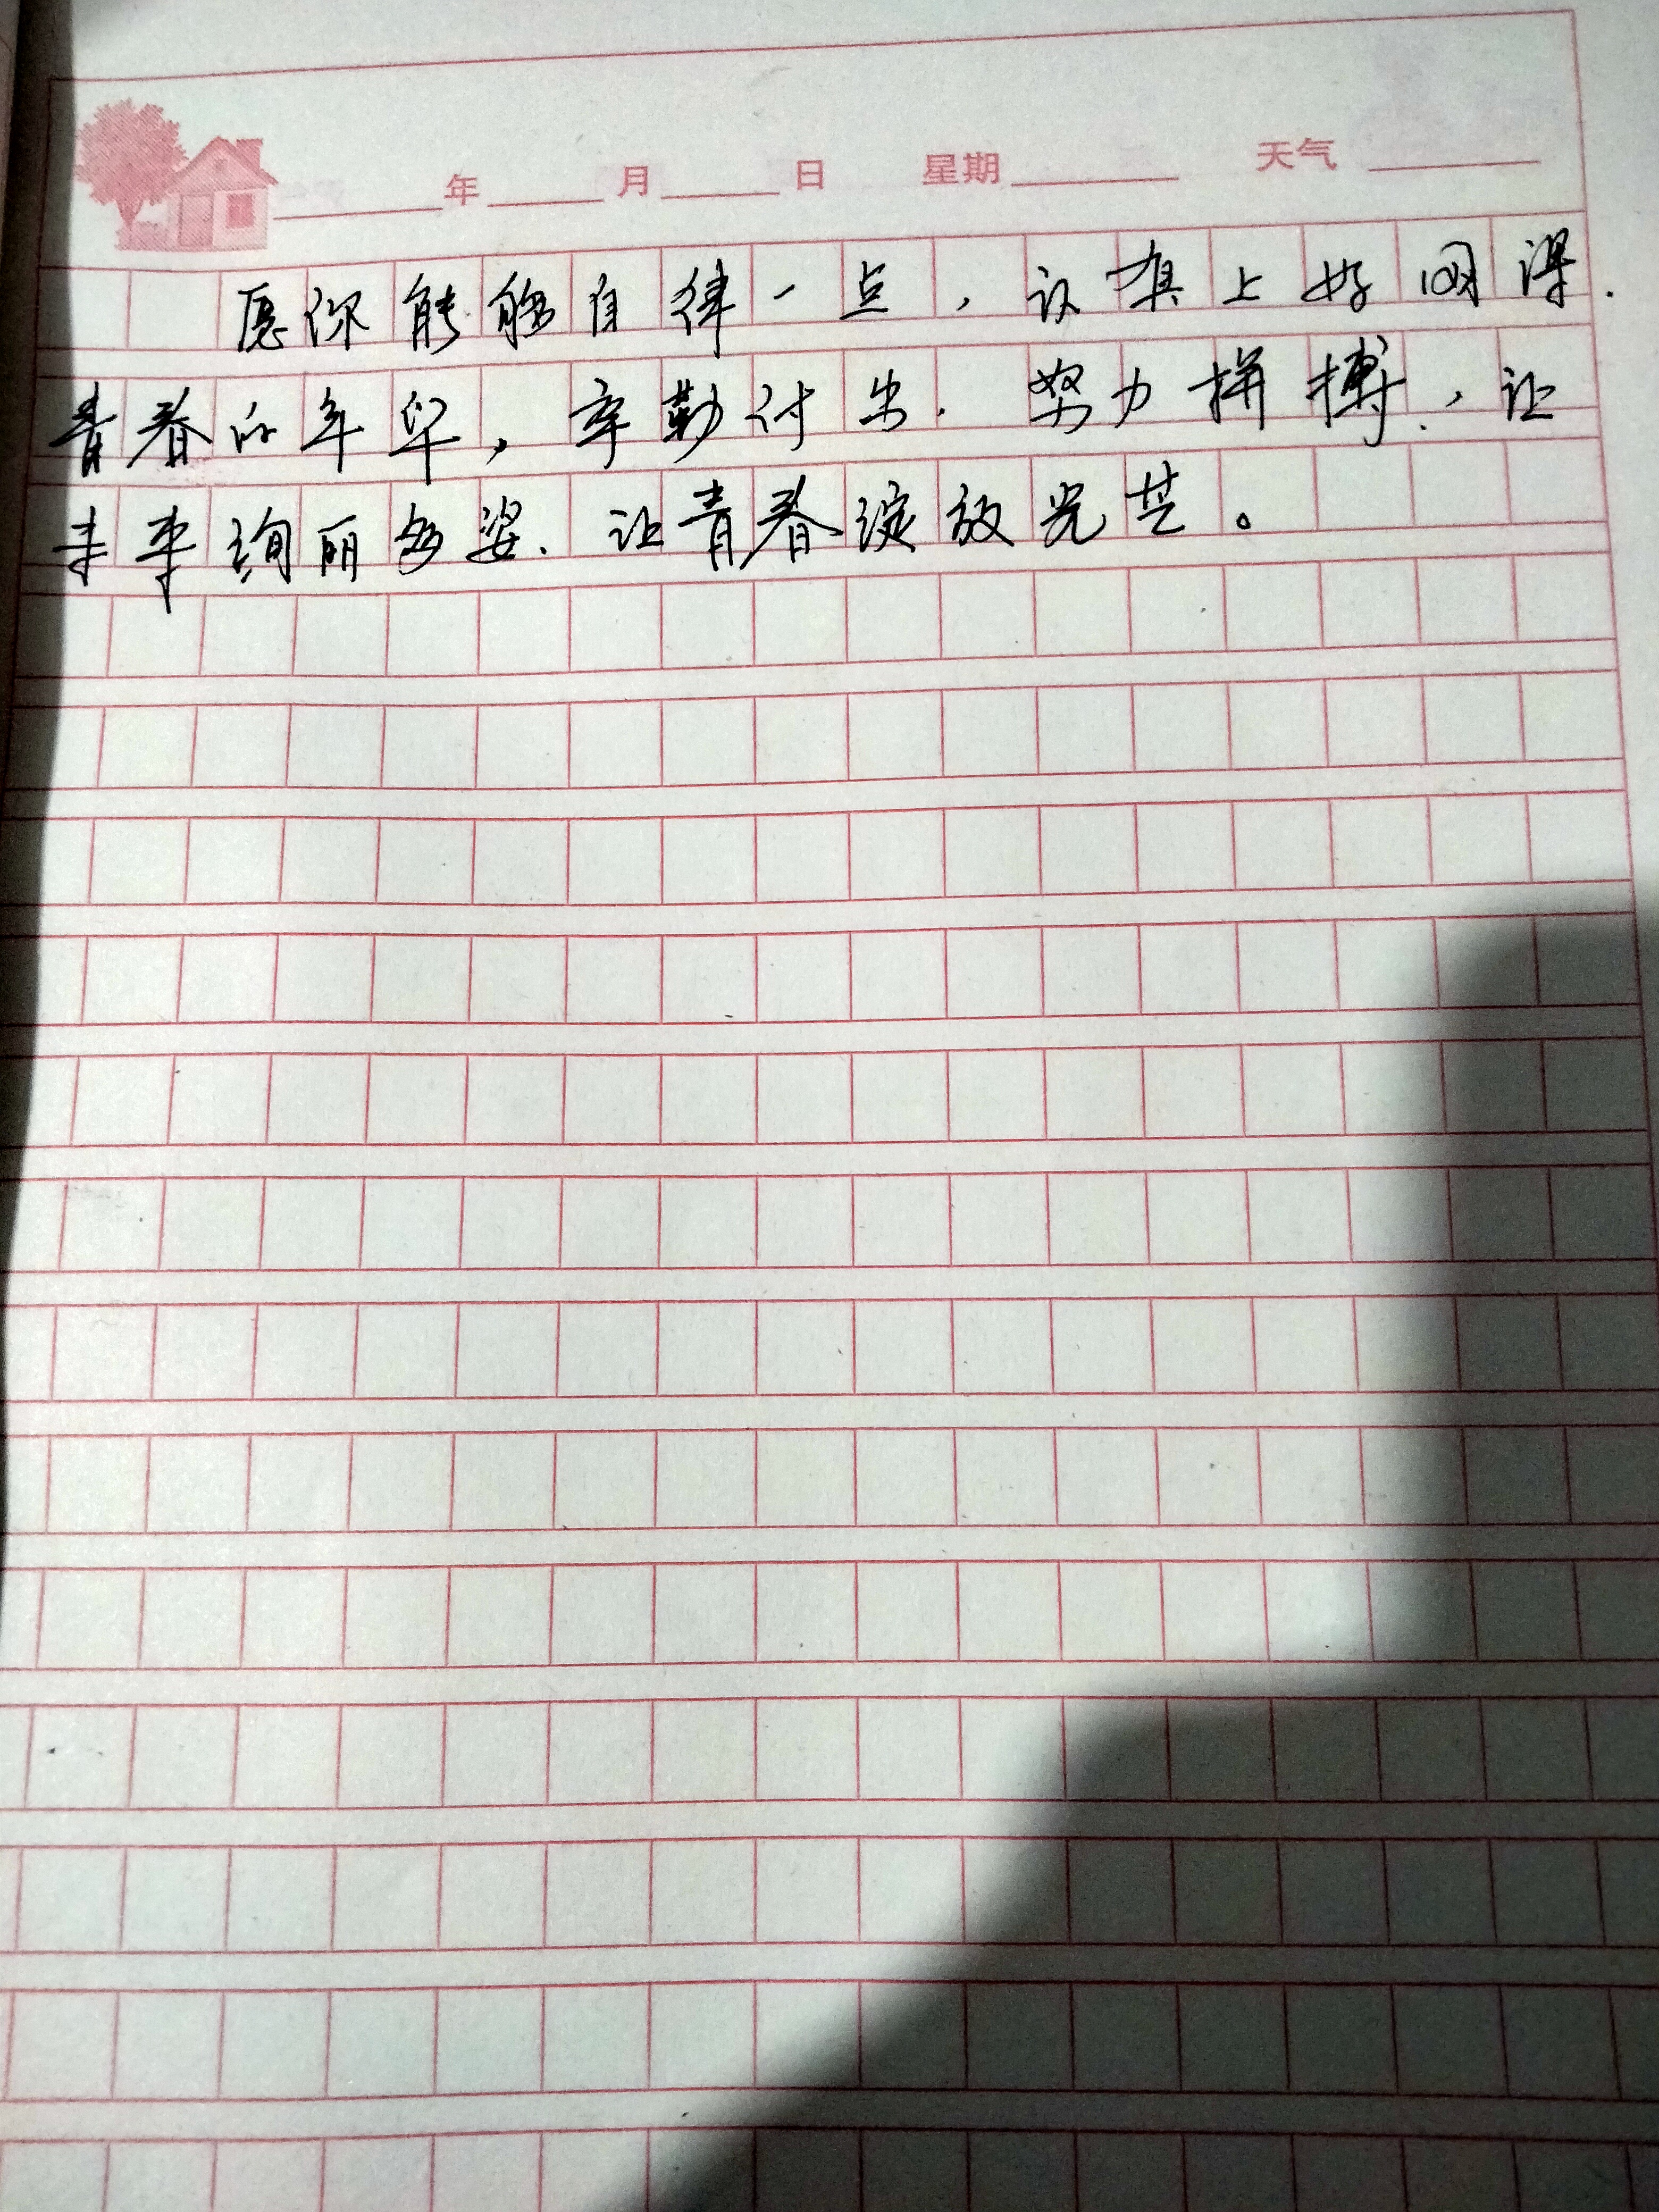 年 月 日 星期 天气
愿你能够自律一点，认真上好网课.
青春的年华，辛勤付出. 努力拼搏，让
未来绚丽多姿. 让青春绽放光芒。